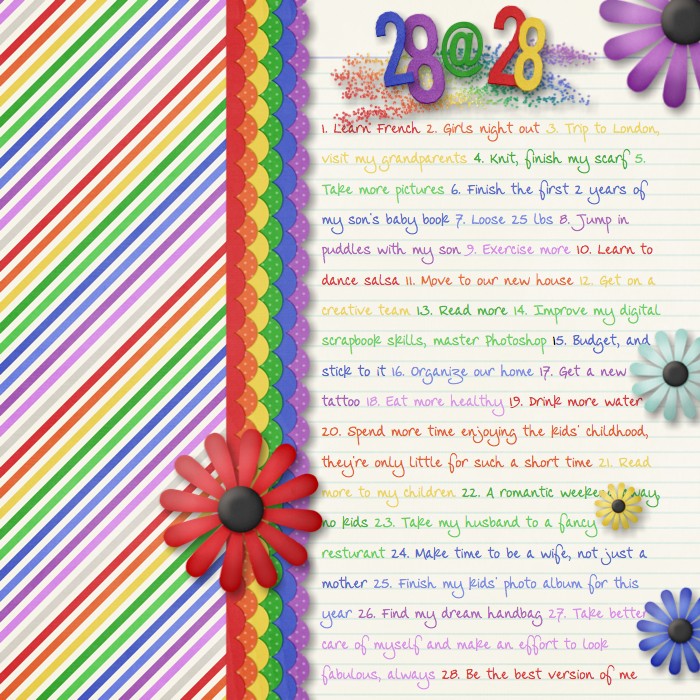 28@28
1. Learn French 2. Girls night out 3. Trip to London,
visit my grandparents 4. Knit, finish my scarf 5.
Take more pictures 6. Finish the first 2 years of
my son's baby book 7. Loose 25 lbs 8. Jump in
puddles with my son 9. Exercise more 10. Learn to
dance salsa 11. Move to our new house 12. Get on a
creative team 13. Read more 14. Improve my digital
scrapbook skills, master Photoshop 15. Budget, and
stick to it 16. Organize our home 17. Get a new
tattoo 18. Eat more healthy 19. Drink more water
20. Spend more time enjoying the kids' childhood,
they're only little for such a short time 21. Read
more to my children 22. A romantic weekend away,
no kids 23. Take my husband to a fancy
resturant 24. Make time to be a wife, not just a
mother 25. Finish my kids' photo album for this
year 26. Find my dream handbag 27. Take better
care of myself and make an effort to look
fabulous, always 28. Be the best version of me